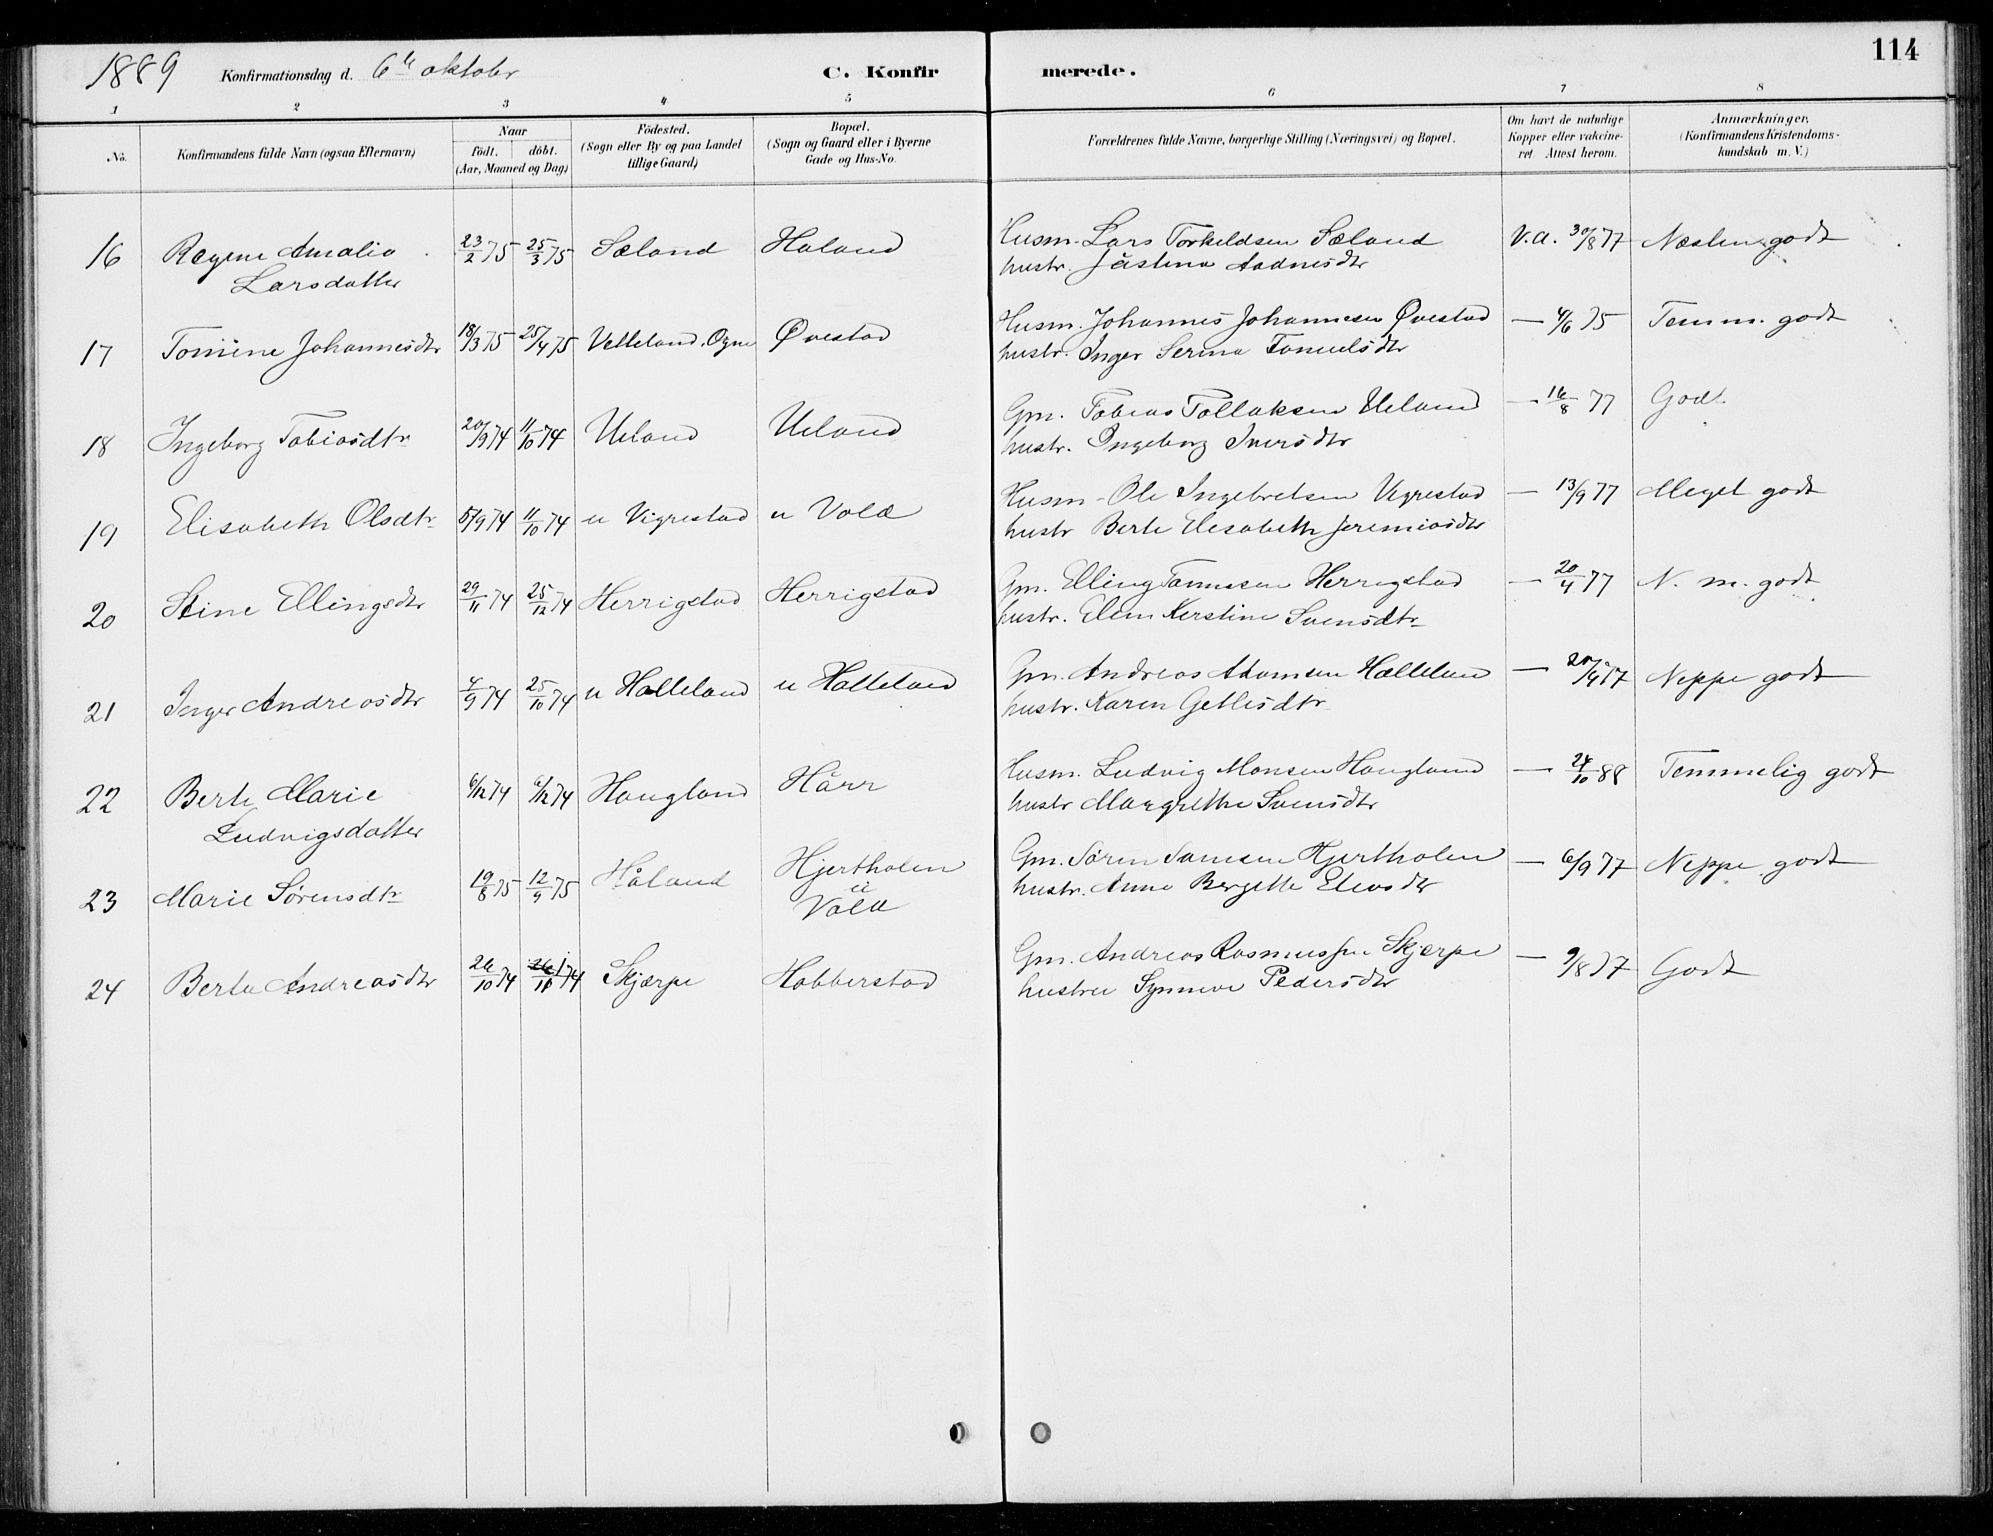 1889 Konfirmationsdag d. 6te oktober C. Konfirmerede. 114
1 2 3 4 5 6 7 8
No. Konfirmandens fulde Navn (ogsaa Efternavn) Naar født. døbt. (Aar, Maaned og Dag) Fødested. (Sogn eller By og paa Landet tillige Gaard) Bopæl. (Sogn og Gaard eller i Byerne Gade og Hus-No. Forældrenes fulde Navne, borgerlige Stilling (Næringsvei) og Bopæl. Om havt de naturlige Kopper eller vakcineret. Attest herom. Anmærkninger. (Konfirmandens Kristendomskundskab m. V.)
16 Regine Amalia 23/2 75 25/3 75 Sæland Haland Husm. Lars Torkildsen Sæland V.A. 30/8 77 Næsten godt
Larsdatter hustr. Jåstina Aadnesdtr
17 Tomine Johannesdtr 18/3 75 25/4 75 Velleland, Ogne Øvestad Husm. Johannes Johannesen Øvestad — 4/6 75 Temm. godt
hustr. Inger Serina Tomulsdtr
18 Ingeborg Tobiasdtr 20/9 74 11/10 74 Ueland Ueland Gm. Tobias Tollaksen Ueland — 16/8 77 God.
hustr. Ingeborg Iversdtr
19 Elisabeth Olsdtr 5/9 74 11/10 74 u Vigrestad u Vold Husm. Ole Ingebretsen Vigrestad — 13/9 77 Meget godt
hustr Berte Elesabeth Jeremiasdtr
20 Stine Ellingsdtr 29/11 74 25/12 74 Herrigstad Herrigstad Gm. Elling Tannesen Herrigstad — 20/4 77 N. m. godt
hustr. Elen Kerstine Svensdtr
21 Inger Andreasdtr 4/9 74 25/10 74 u Halleland u Halleland Gm. Andreas Adamsen Hælleland — 20/4 77 Neppe godt
hustr. Karen Getlisdtr
22 Berte Marie 6/12 74 6/12 74 Haugland Hårr Husm. Ludvig Monsen Haugland — 24/10 88 Temmelig godt
Ludvigsdatter hustr Margrethe Svensdtr
23 Marie Sørensdtr 19/8 75 12/9 75 Håland Hjertholen u Vold Gm. Søren Samsen Hjertholen — 6/9 77 Neppe godt
hustr. Anna Bergitte Eliasdtr
24 Berta Andreasdtr 26/10 74 1/11 74 Skjærpe Hobberstad Gm. Andreas Rasmussen Skjærpe — 9/8 77 Godt
hustru Synneve Pedersdtr